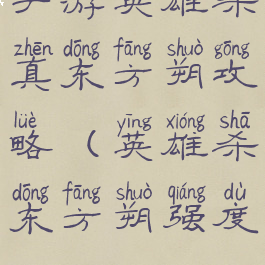 手游英雄杀
zhēn dōng fāng shuò gōng
真东方朔攻
lüè yīng xióng shā
略（英雄杀
dōng fāng shuò qiáng dù
东方朔强度